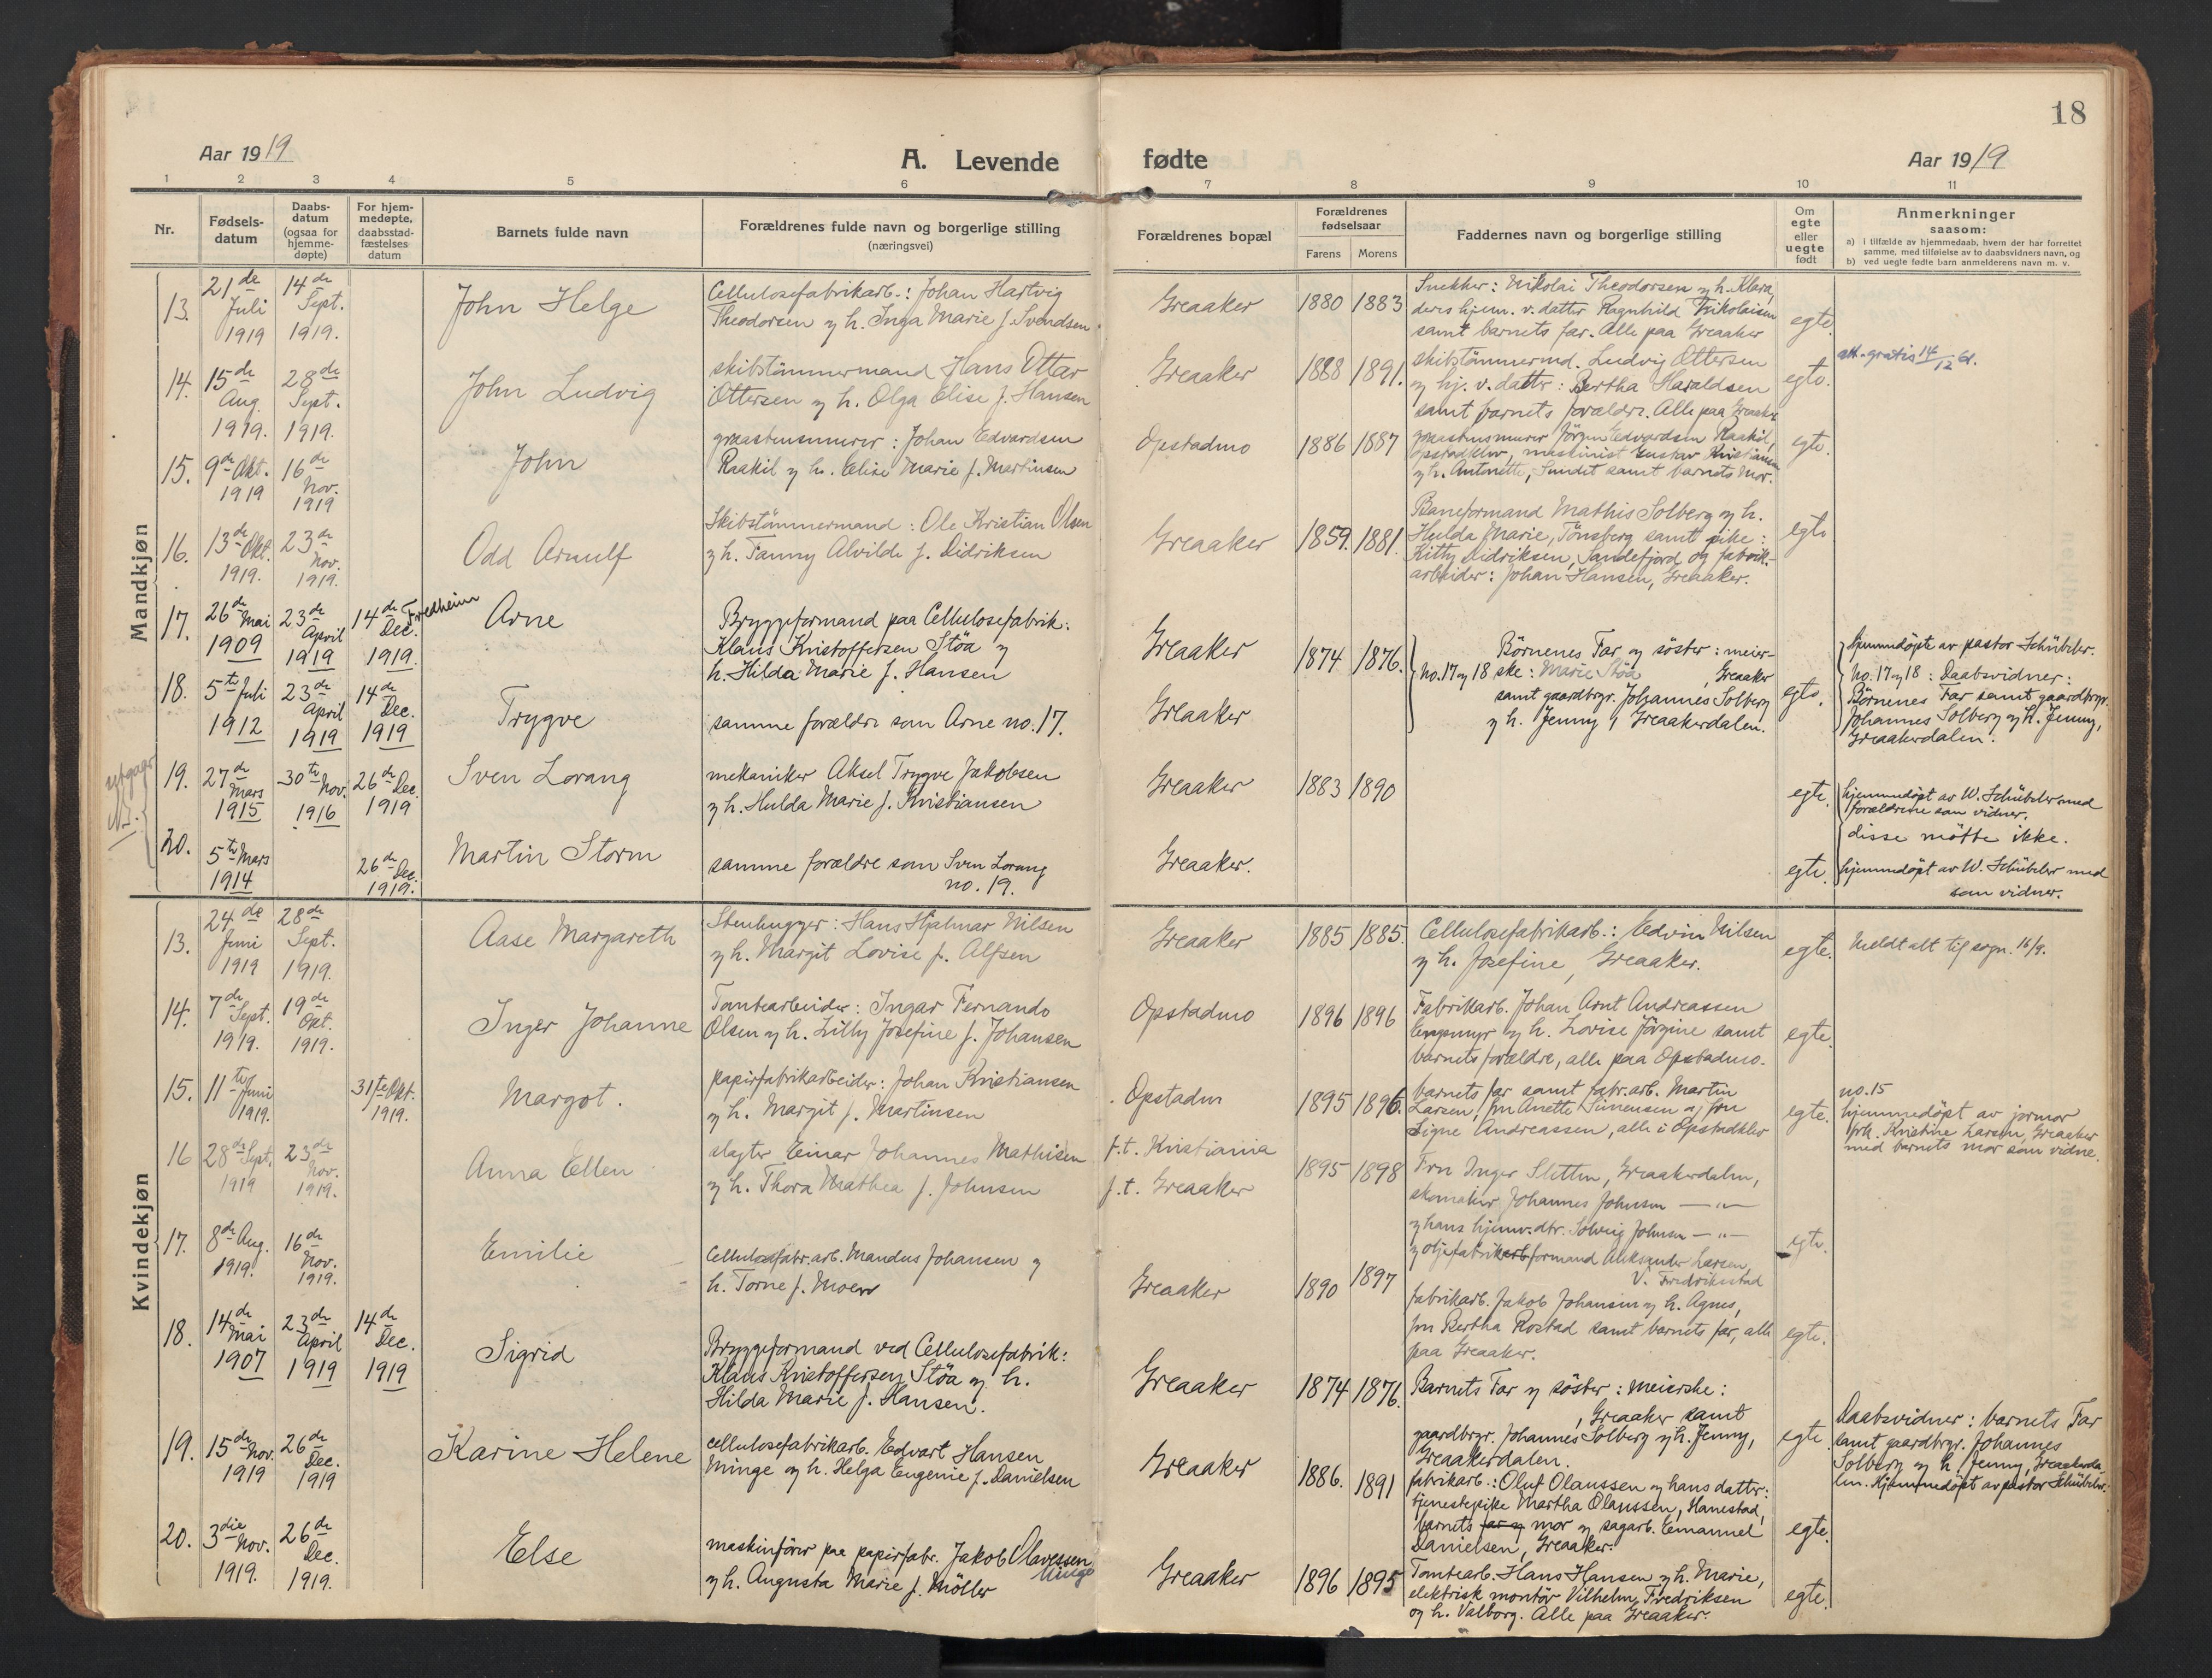 18
Aar 1919
A. Levende fødte
Aar 1919
1 2 3 4 5 6 7 8 9 10 11
Nr.
Fødsels-
datum
Daabs-
datum
(ogsaa for
hjemme-
døpte)
For hjem-
medøpte,
daabsstad-
fæstelses
datum
Barnets fulde navn
Forældrenes fulde navn og borgerlige stilling
(næringsvei)
Forældrenes bopæl
Forældrenes
fødselsaar
Farens Morens
Faddernes navn og borgerlige stilling
Om
egte
eller
uegte
født
Anmerkninger
saasom:
a) i tilfælde av hjemmedaab, hvem der har forrettet
samme, med tilføielse av to daabsvidners navn, og
b) ved uegte fødte barn anmelderens navn m. v.
Mandkjøn
13.
21de
Juli
1919
14de
Sept.
1919.
John Helge
Cellulosefabrikarb.: Johan Hartvig
Theodorsen og h. Inga Marie f. Svendsen
Greaaker
1880 1883
Snekker: Nikolai Theodorsen og h. Klara,
deres hjem. v. datter Ragnhild Nikolaisen
samt barnets far. Alle paa Greaaker
egte.
14.
15de
Aug.
1919.
28de
Sept.
1919.
John Ludvig
skibstömmermand Hans Ottar
Ottersen og h. Olga Elise f. Hansen
Greaaker
1888 1891.
skibstömmermd. Ludvig Ottersen
og hj. v. datter: Bertha Haraldsen
samt barnets forældre. Alle paa Greaaker
egte.
att. gratis 14/12 61.
15.
9de Okt.
1919
16de
Nov.
1919
John
graastensmurer: Johan Edvardsen
Raakil og h. Elise Marie f. Martinsen
Opstadmo
1886 1887
graastensmurer Jörgen Edvardsen Raakil,
Opstadklev, maskinist Gustav Kristiansen
og h. Antonette, Sundet samt barnets mor.
egte.
16.
13de Okt.
1919.
23de
Nov.
1919.
Odd Arnulf
Skibstömmermand: Ole Kristian Olsen
og h. Fanny Alvilde f. Didriksen
Greaaker
1859. 1881.
Baneformand Mathis Solberg og h.
Hulda Marie, Tönsberg samt pike:
Kitty Didriksen, Sandefjord og fabrik-
arbeider: Johan Hansen, Greaaker.
egte
17.
26de Mai
1909
23de
April
1919
14de
Dec.
1919.
Fredheim
Arne
Bryggeformand paa Cellulosefabrik:
Klaus Kristoffersen Stöa og
h. Hilda Marie f. Hansen
Greaaker
1874 1876.
No. 17 og 18
Börnenes Far og söster: meier-
ske: Marie Stöa, Greaaker
samt gaardbrgr. Johannes Solberg
og h. Jenny, Greaakerdalen.
egte.
hjemmedöpte av pastor Schübeler.
No. 17 og 18: Daabsvidner:
Börnenes Far samt gaardbrgr.
Johannes Solberg og h. Jenny,
Greaakerdalen.
18.
5te Juli
1912
23de
April
1919
14de
Dec.
1919
Trygve
samme forældre som Arne no. 17.
Greaaker
19.
27de
Mars
1915
30te Nov.
1916
26de Dec.
1919
Sven Lorang
mekaniker Aksel Trygve Jakobsen
og h. Hulda Marie f. Kristiansen
Greaaker
1883 1890
egte.
hjemmedöpt av W. Schübeler med
forældrene som vidner.
disse mötte ikke.
utgaar
20.
5te Mars
1914
26de Dec.
1919.
Martin Storm
samme forældre som Sven Lorang
no. 19.
Greaaker.
egte.
hjemmedöpt av W. Schübeler med
som vidner.
Kvindekjøn
13.
24de
Juni
1919
28de
Sept.
1919.
Aase Margareth
Stenhugger: Hans Hjalmar Nilsen
og h. Margit Lovise f. Alfsen
Greaaker
1885 1885.
Cellulosefabrikarb.: Edvin Nilsen
og h. Josefine, Greaaker.
egte.
Meldt alt til sogn. 16/9.
14.
7de
Sept.
1919.
19de
Okt.
1919.
Inger Johanne
Tomtearbeider: Ingar Fernando
Olsen og h. Lilly Josefine f. Johansen
Opstadmo
1896 1896
Fabrikarb. Johan Arnt Andreassen
Engsmyr og h. Lovise Jörgine samt
barnets forældre, alle paa Opstadmo.
egte.
15.
11te Juni
1919.
31te Okt.
1919.
Margot.
papirfabrikarbeider: Johan Kristiansen
og h. Margit f. Martinsen
Opstadm
1895 1896.
barnets far samt fabr.arb. Martin
Larsen, fru Anette Simensen og fru
Signe Andreassen, alle i Opstadklev
egte.
no. 15
hjemmedöpt av jormor
frk. Kristine Larsen, Greaaker
med barnets mor som vidne.
16
28de Sept.
1919
23de
Nov.
1919.
Anna Ellen
slagter Einar Johannes Mathisen
og h. Thora Mathea f. Johnsen
f.t. Kristiania
f.t. Greaaker
1895 1898
Fru Inger Sletten, Greaakerdalen,
skomaker Johannes Johnsen — " —
og hans hjemv. dtr. Solveig Johnsen — " —
og oljefabrikarbformand Aleksander Larsen,
V. Fredrikstad
egte.
17.
8de Aug.
1919.
16de
Nov.
1919.
Emilie
Cellulosefabr. arb. Mandus Johansen og
h. Torne f. Moen
Greaaker
1890 1897
fabrikarb. Jakob Johansen og h. Agnes,
fru Bertha Rostad samt barnets far, alle
paa Greaaker.
egte.
18.
14de
Mai
1907
23de
April
1919
14de
Dec.
1919
Sigrid
Bryggeformand ved Cellulosefabrik:
Klaus Kristoffersen Stöa og h.
Hilda Marie f. Hansen.
Greaaker
1874 1876.
Barnets Far og söster: meierske:
, Greaaker samt
gaardbrgr. Johannes Solberg og h. Jenny,
Greaakerdalen.
egte
Daabsvidner: barnets Far
samt gaardbrgr. Johannes
Solberg og h. Jenny, Greaakerda-
len. Hjemmedöpt av pastor Schübeler.
19.
15de Nov.
1919
26de
Dec.
1919
Karine Helene
cellulosefabrikarb. Edvart Hansen
Minge og h. Helga Eugenie f. Danielsen
Greaaker
1886. 1891
fabrikarb.: Oluf Olaussen og hans datter:
tjenestepike Martha Olaussen, Hanestad,
barnets far og mor og sagarb. Emanuel
Danielsen, Greaaker.
egte.
20.
3die
Nov.
1919.
26de
Dec.
1919.
Else
maskinförer paa papirfabr. Jakob Olavessen
Minge
og h. Augusta Marie f. Möller
Greaaker
1896 1895
Tomtearb. Hans Hansen og h. Marie,
elektrisk montör Vilhelm Fredriksen
og h. Valborg. Alle paa Greaaker.
egte.